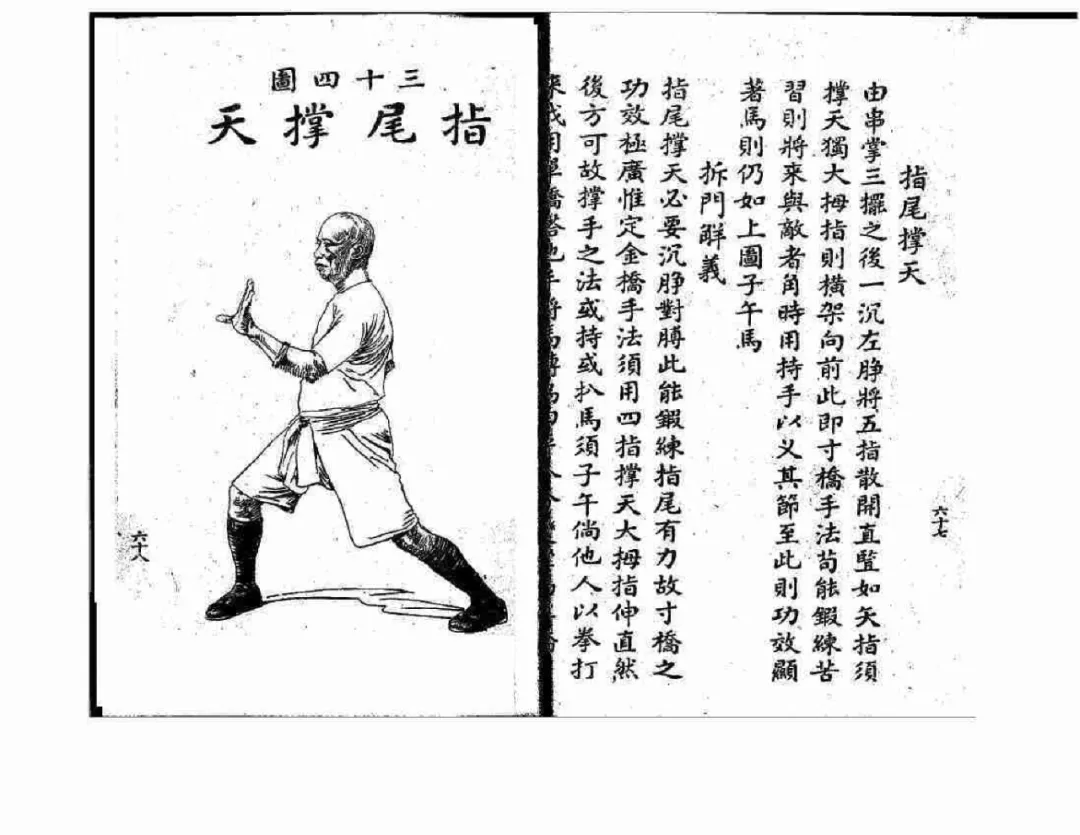 指尾撐天
由串掌三擺之後一沉左睜將五指散開直竪如矢指須
撐天獨大拇指則橫架向前此即寸橋手法苟能鍜練苦
習則將来與敵者角時用持手以义其節至此則功效顯
著馬則仍如上圖子午馬
拆門觧義
指尾撐天必要沉睜對膊此能鍜練指尾有力故寸橋之
功效極廣惟定金橋手法須用四指撐天大拇指伸直然
後方可故撐手之法或持或扒馬須子午倘他人以拳打
來我用單橋搭他手將馬轉為四平
六十七
三十四圖
指尾撐天
六十八